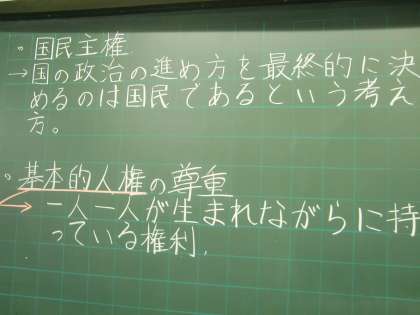 。国民主権
→国の政治の進め方を最終的に決
めるのは国民であるという考え
方。
。基本的人権の尊重
→一人一人が生まれながらに持
っている権利.